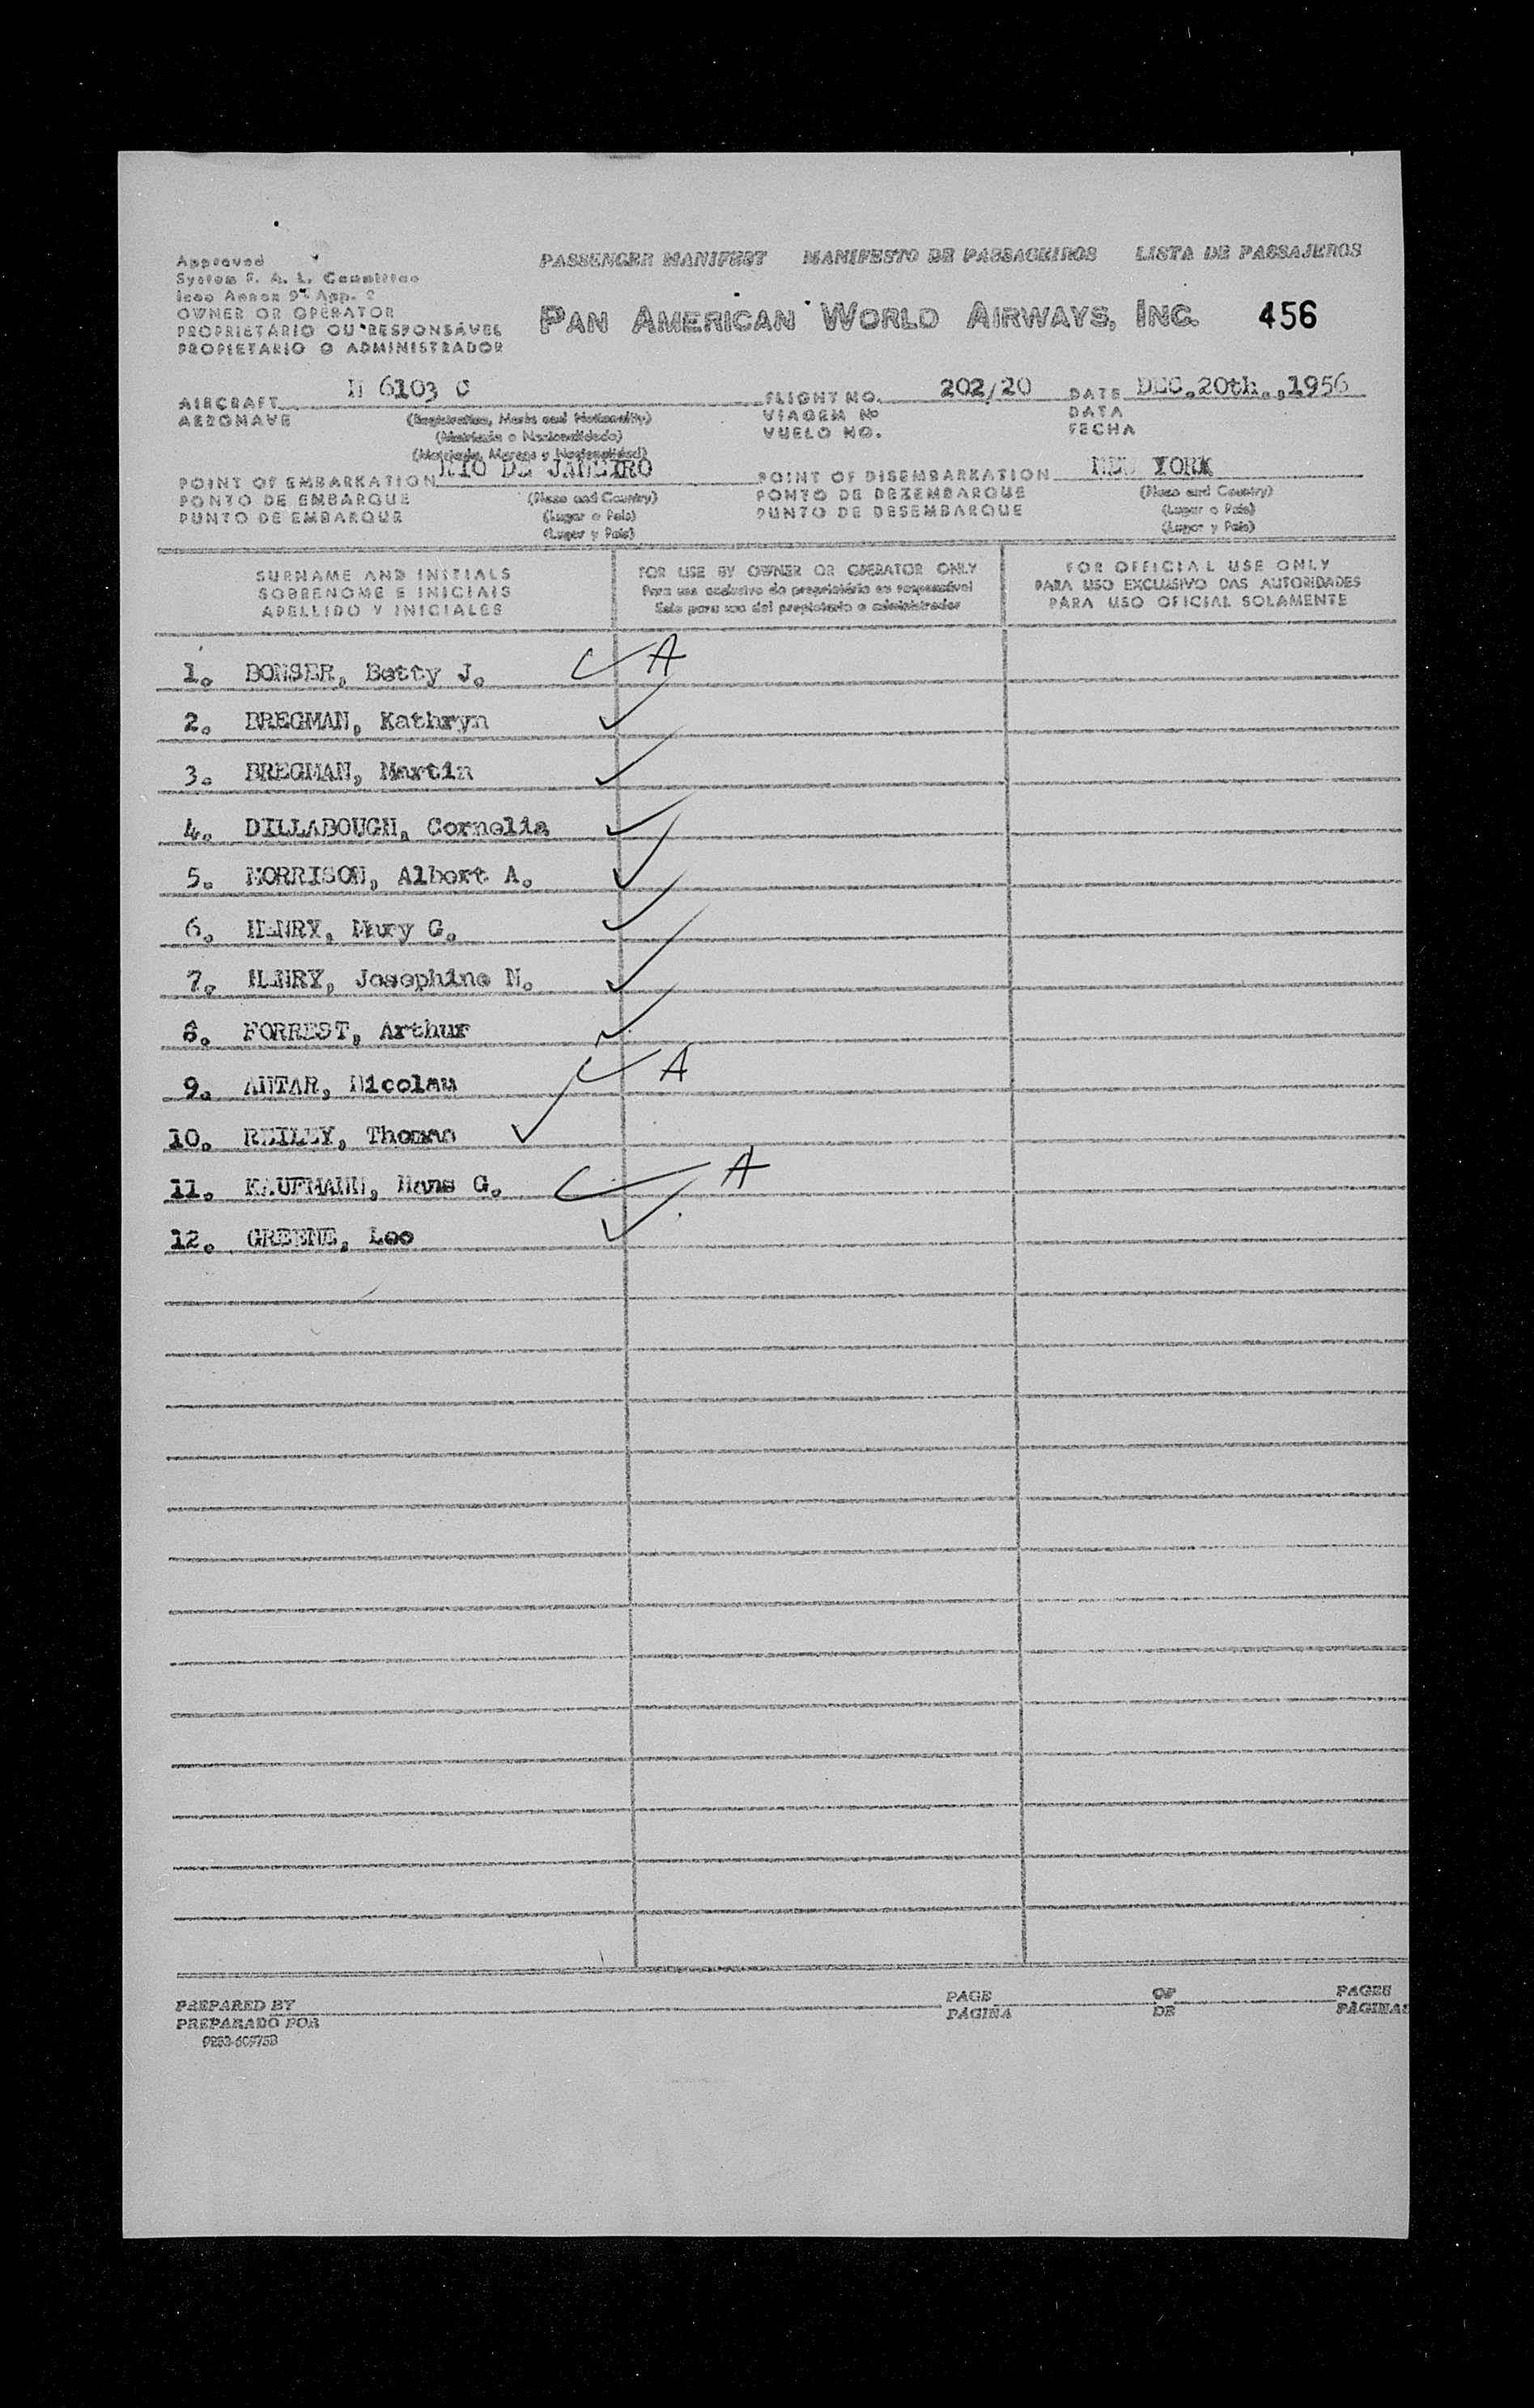 Approved
System F. A. L. Committee
Icao Annex 9 - App. 2
OWNER OR OPERATOR
PROPRIETÁRIO OU RESPONSÁVEL
PROPIETARIO O ADMINISTRADOR
PASSENGER MANIFEST MANIFESTO DE PASSAGEIROS LISTA DE PASAJEROS
PAN AMERICAN WORLD AIRWAYS, INC. 456
AIRCRAFT N 6103 C FLIGHT NO. 202/20 DATE DEC.20th.,1956
AERONAVE (Registration, Marks and Nationality) VIAGEM Nº DATA
(Matrícula e Nacionalidade) VUELO NO. FECHA
(Matrícula, Marcas y Nacionalidad)
POINT OF EMBARKATION RIO DE JANEIRO POINT OF DISEMBARKATION NEW YORK
PONTO DE EMBARQUE (Place and Country) PONTO DE DEZEMBARQUE (Place and Country)
PUNTO DE EMBARQUE (Lugar e País) PUNTO DE DESEMBARQUE (Lugar e País)
(Lugar y País) (Lugar y País)
SURNAME AND INITIALS FOR USE BY OWNER OR OPERATOR ONLY FOR OFFICIAL USE ONLY
SOBRENOME E INICIAIS Para uso exclusivo do proprietário ou responsável PARA USO EXCLUSIVO DAS AUTORIDADES
APELLIDO Y INICIALES Solo para uso del propietario o administrador PARA USO OFICIAL SOLAMENTE
1. BONSER, Betty J. A
2. BREGMAN, Kathryn
3. BREGMAN, Martin
4. DILLABOUGH, Cornelia
5. MORRISON, Albert A.
6. HENRY, Mary G.
7. HENRY, Josephine N.
8. FORREST, Arthur
9. ANTAR, Nicolau A
10. REILEY, Thomas
11. KAUFMANN, Hans G. A
12. GREENE, Leo
PREPARED BY PAGE OF PAGES
PREPARADO POR PÁGINA DE PÁGINAS